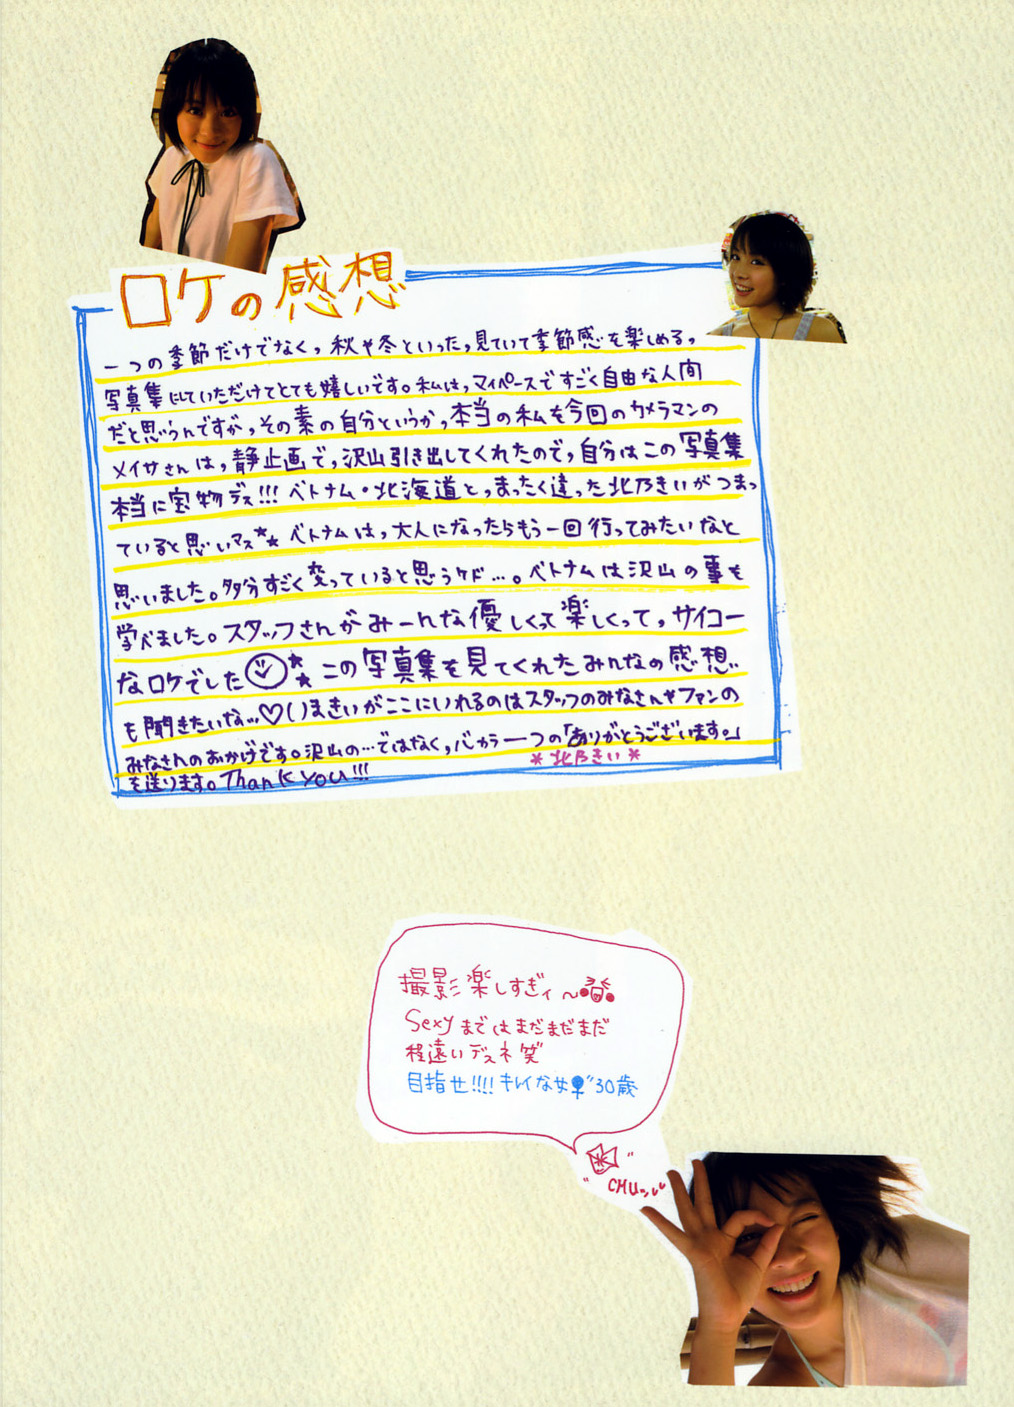 ロケの感想
一つの季節だけでなく,秋や冬といった,見ていて季節感を楽しめる,
写真集にしていただけてとても嬉しいです。私は,マイペースですごく自由な人間
だと思うんですが,その素の自分というか,本当の私を今回のカメラマンの
メイサさんは,静止画で,沢山引き出してくれたので,自分はこの写真集
本当に宝物デス!!!ベトナム・北海道と,まったく違った北乃きいがつまっ
ていると思いマス ベトナムは,大人になったらもう一回行ってみたいなと
思いました。多分すごく変っていると思うケド…。ベトナムは沢山の事を
学べました。スタッフさんがみーんな優しくって楽しくって,サイコー
なロケでした この写真集を見てくれたみんなの感想
も聞きたいな…♡いまきいがここにいれるのはスタッフのみなさんやファンの
みなさんのおかげです。沢山の…ではなく,心から一つの「ありがとうございます。」
を送ります。Thank you!!!
*北乃きい*
撮影楽しすぎィ～
Sexyまではまだまだまだ
程遠いデスネ笑
目指せ!!!!キレイな女 30歳
"CHUッ"